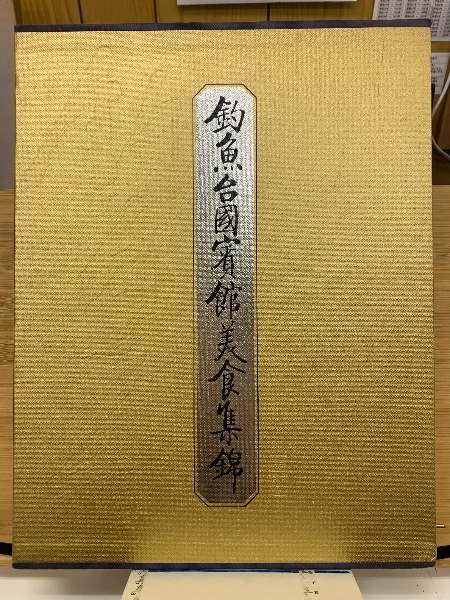 釣魚台國賓館美食集錦